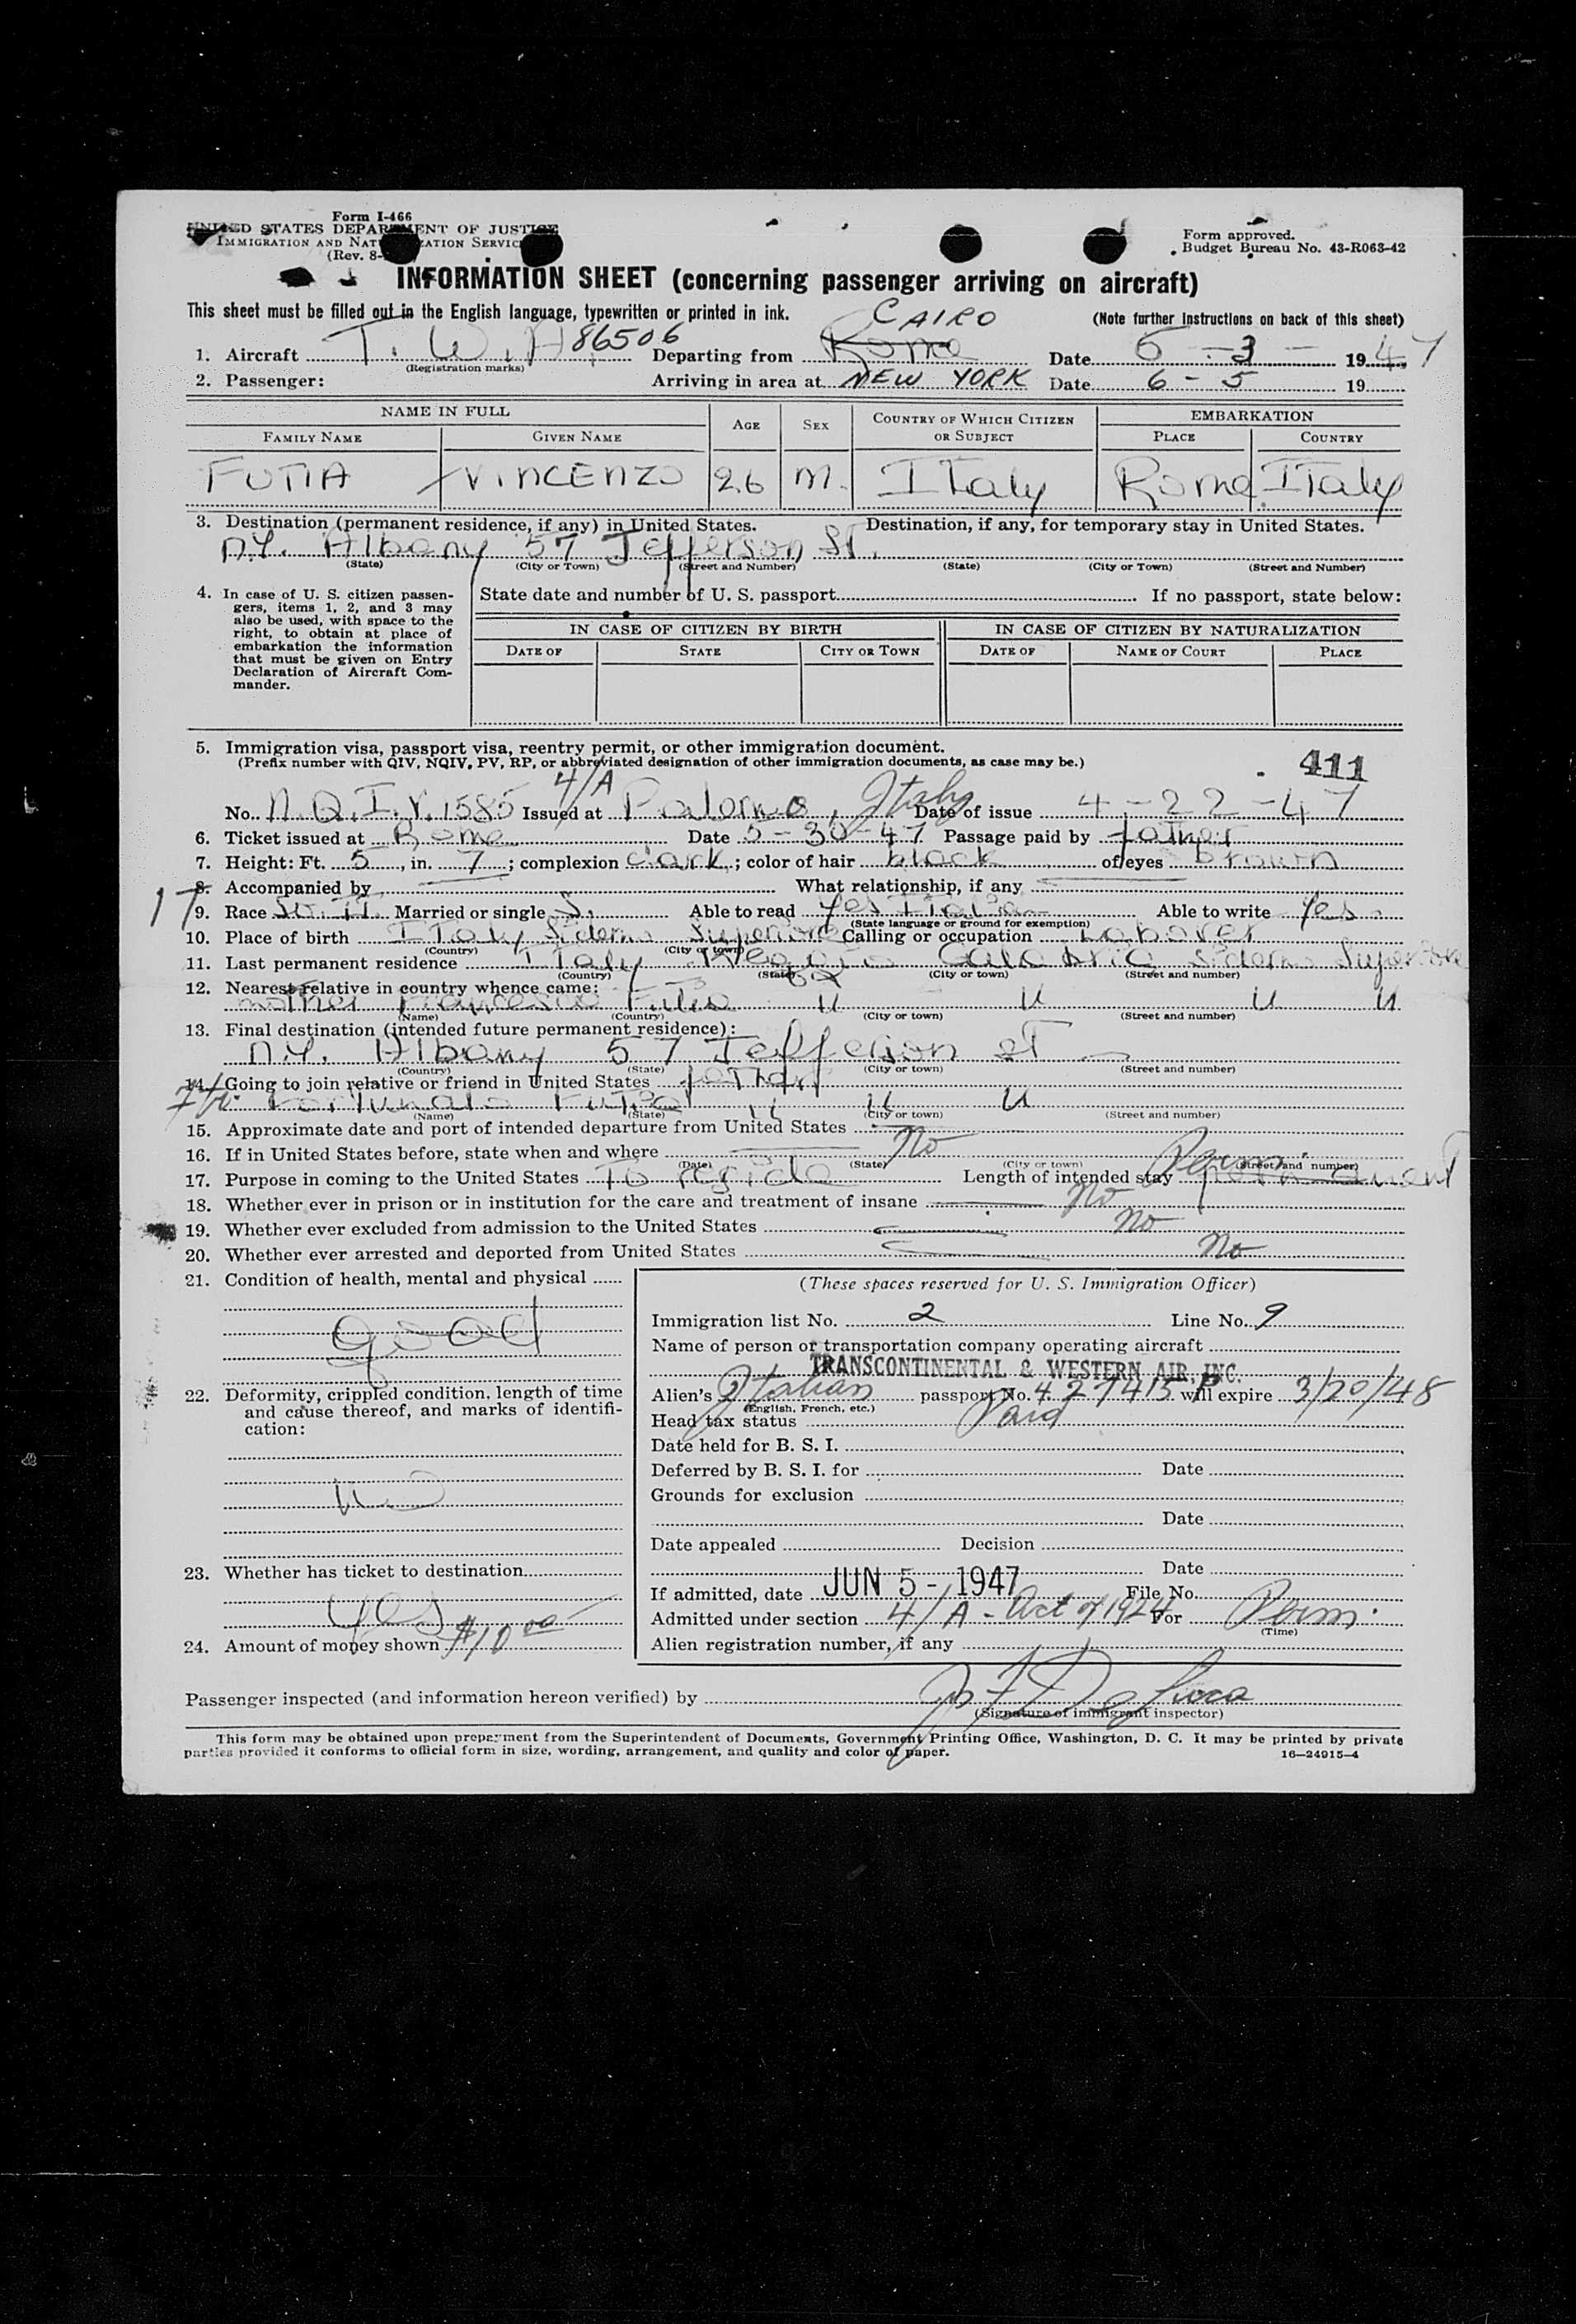 Form I-466
UNITED STATES DEPARTMENT OF JUSTICE
IMMIGRATION AND NATURALIZATION SERVICE
(Rev. 8-
Form approved.
Budget Bureau No. 43-R063-42
INFORMATION SHEET (concerning passenger arriving on aircraft)
This sheet must be filled out in the English language, typewritten or printed in ink.
(Note further instructions on back of this sheet)
CAIRO
1. Aircraft T. W. A 86506 Departing from Rome Date 6 - 3 - 1947
(Registration marks)
2. Passenger: Arriving in area at NEW YORK Date 6 - 5 19
NAME IN FULL AGE SEX COUNTRY OF WHICH CITIZEN OR SUBJECT EMBARKATION
FAMILY NAME GIVEN NAME PLACE COUNTRY
FUTIA VINCENZO 26 M. ITaly Rome ITaly
3. Destination (permanent residence, if any) in United States. Destination, if any, for temporary stay in United States.
N.Y. Albany 57 Jefferson ST.
(State) (City or Town) (Street and Number) (State) (City or Town) (Street and Number)
4. In case of U. S. citizen passengers, items 1, 2, and 3 may also be used, with space to the right, to obtain at place of embarkation the information that must be given on Entry Declaration of Aircraft Commander.
State date and number of U. S. passport If no passport, state below:
IN CASE OF CITIZEN BY BIRTH IN CASE OF CITIZEN BY NATURALIZATION
DATE OF STATE CITY OR TOWN DATE OF NAME OF COURT PLACE
5. Immigration visa, passport visa, reentry permit, or other immigration document.
(Prefix number with QIV, NQIV, PV, RP, or abbreviated designation of other immigration documents, as case may be.)
411
4/A
No. N.Q.I.V. 1585 Issued at Palermo, Italy Date of issue 4-22-47
6. Ticket issued at Rome Date 5-30-47 Passage paid by father
7. Height: Ft. 5, in. 7; complexion dark; color of hair black of eyes brown
8. Accompanied by What relationship, if any
17
9. Race So. IT. Married or single S. Able to read Yes ITalian Able to write Yes
(State language or ground for exemption)
10. Place of birth ITaly Siderno Superiore Calling or occupation Laborer
(Country) (City or town)
11. Last permanent residence ITaly Reggio Calabria Siderno Superiore
(Country) (State) (City or town) (Street and number)
12. Nearest relative in country whence came:
mother Francesca Futia " " " "
(Name) (Country) (City or town) (Street and number)
13. Final destination (intended future permanent residence):
N.Y. Albany 57 Jefferson ST
(Country) (State) (City or town) (Street and number)
14. Going to join relative or friend in United States father
Fortunato Futia " " "
(Name) (State) (City or town) (Street and number)
15. Approximate date and port of intended departure from United States
16. If in United States before, state when and where No
(Date) (State) (City or town) (Street and number)
17. Purpose in coming to the United States To reside Length of intended stay Perm. permanent
18. Whether ever in prison or in institution for the care and treatment of insane No
19. Whether ever excluded from admission to the United States No
20. Whether ever arrested and deported from United States No
21. Condition of health, mental and physical
good
22. Deformity, crippled condition, length of time and cause thereof, and marks of identification:
no
23. Whether has ticket to destination
yes
24. Amount of money shown $10.00
(These spaces reserved for U. S. Immigration Officer)
Immigration list No. 2 Line No. 9
Name of person or transportation company operating aircraft
TRANSCONTINENTAL & WESTERN AIR, INC.
Alien's Italian passport No. 427415 P will expire 3/20/48
(English, French, etc.)
Head tax status Paid
Date held for B. S. I.
Deferred by B. S. I. for Date
Grounds for exclusion
Date
Date appealed Decision
Date
If admitted, date JUN 5 - 1947 File No.
Admitted under section 4/A - Act of 1924 For Perm.
(Time)
Alien registration number, if any
Passenger inspected (and information hereon verified) by
(Signature of immigrant inspector)
This form may be obtained upon prepayment from the Superintendent of Documents, Government Printing Office, Washington, D. C. It may be printed by private
parties provided it conforms to official form in size, wording, arrangement, and quality and color of paper.
16—24915-4